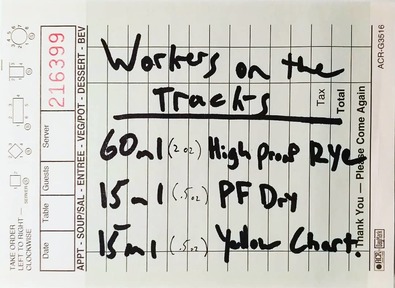 Workers on the
Tracks
60ml (2oz) High Proof Rye
15ml (.5oz) PF Dry
15ml (.5oz) Yellow Chart.
216399
Date
Table
Guests
Server
APPT - SOUP/SAL - ENTREE - VEG/POT - DESSERT - BEV
TAKE ORDER
LEFT TO RIGHT
CLOCKWISE
Tax
Total
Thank You — Please Come Again
ACR-G3516